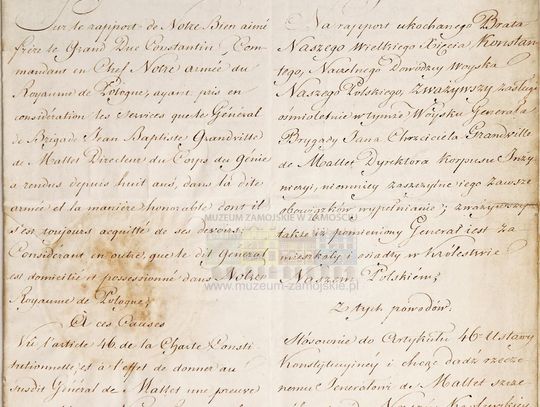 Sur le rapport de Notre Bien aimé
frère le Grand Duc Constantin, Com-
mandant en Chef Notre armée du
Royaume de Pologne, ayant pris en
considération les Services que le Général
de Brigade Jean Baptiste Grandville
de Mallet Directeur du Corps du Génie
a rendus depuis huit ans, dans la dite
armée et la manière honorable dont il
s'est toujours acquitté de ses devoirs;
Considérant en outre, que le dit Général
est domicilié et possessionné dans Notre
Royaume de Pologne;
A ces Causes
Vû l'article 46. de la Charte Consti-
tutionnelle, et à l'effet de donner au
susdit Général de Mallet une preuve
Na rapport ukochanego Brata
Naszego Wielkiego Xięcia, Konstan-
tego, Naczelnego Dowódzcy Woyska
Naszego Polskiego, zważywszy zasługi
ośmioletnie w tymże Woysku Generała
Brygady Jana Chrzciciela Grandville
de Mallet Dyrektora Korpusu Inży-
nieryi, niemniey zaszczytne iego zawsze
obowiązków wypełnianie; zważywszy
także iż pomieniony Generał iest za-
mieszkały i osiadły w Królestwie
Naszem Polskiém;
Z tych powodów.
Stosownie do Artykułu 46º Ustawy
Konstytucyiney i chcąc dadź rzeczo-
nemu Generałowi de Mallet szcze-
MUZEUM ZAMOJSKIE W ZAMOŚCIU
www.muzeum-zamojskie.pl